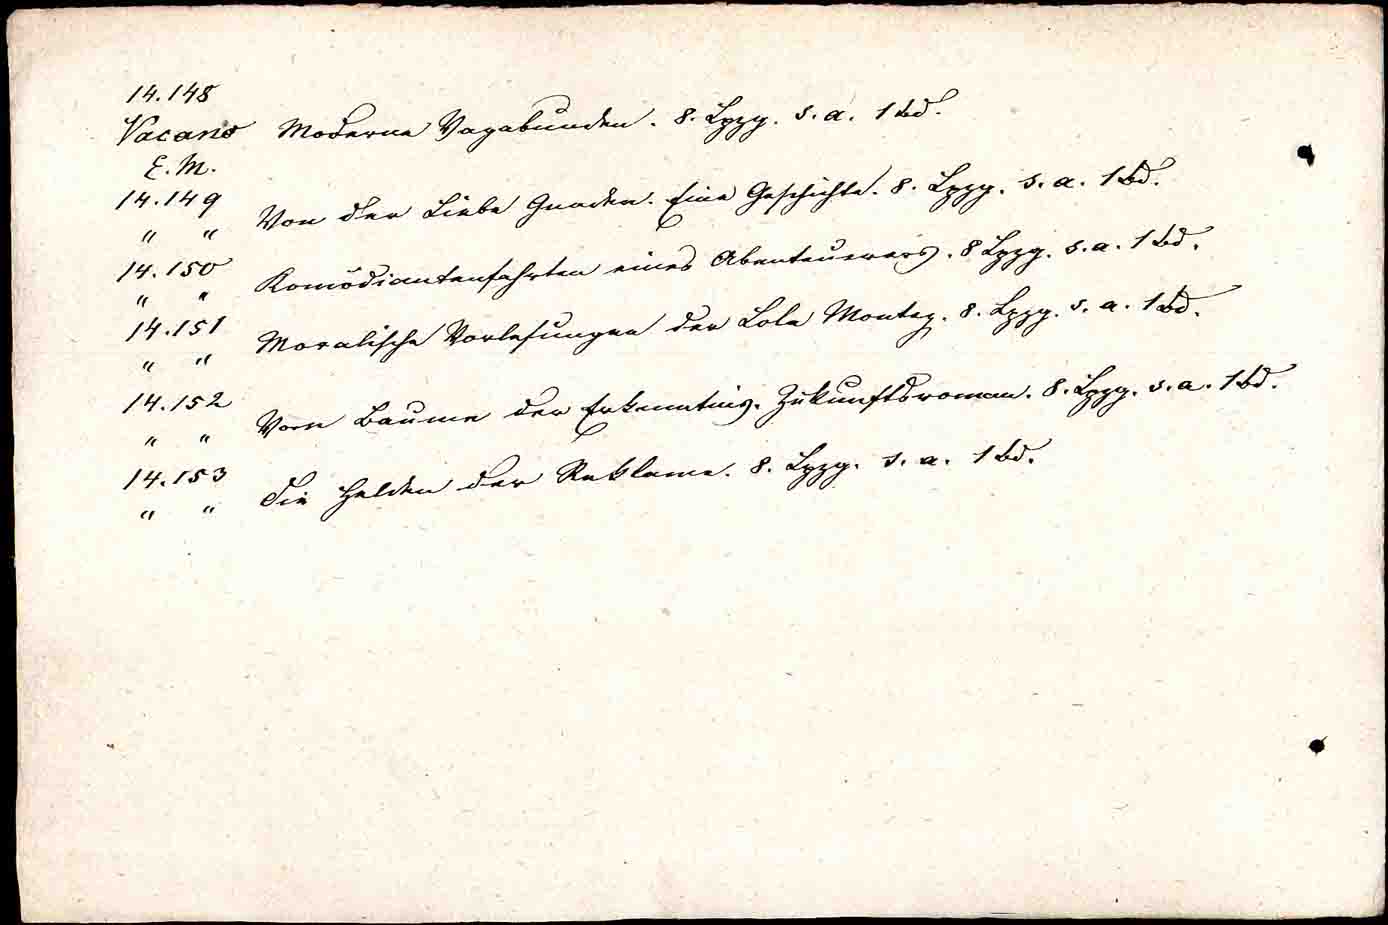 14.148
Vacano Moderne Vagabunden. 8. Lpzg. s. a. 1 Bd.
E. M.
14.149
" " Von der Liebe Gnaden. Eine Geschichte. 8. Lpzg. s. a. 1 Bd.
14.150
" " Komödiantenfahrten eines Abenteuerers. 8 Lpzg. s. a. 1 Bd.
14.151
" " Moralische Vorlesungen der Lola Montez. 8. Lpzg. s. a. 1 Bd.
14.152
" " Vom Baume der Erkenntnis. Zukunftsroman. 8. Lpzg. s. a. 1 Bd.
14.153
" " Die Helden der Reklame. 8. Lpzg. s. a. 1 Bd.